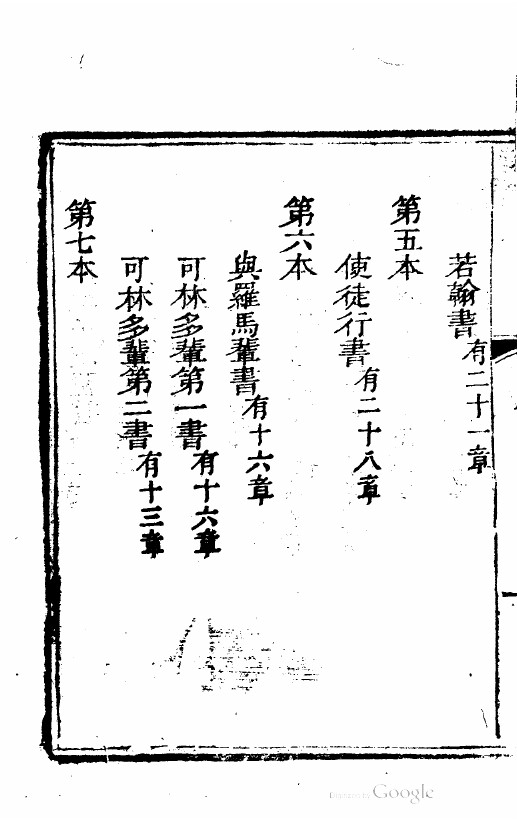 若翰書有二十一章
第五本
使徒行書有二十八章
第六本
與羅馬輩書有十六章
可林多輩第一書有十六章
可林多輩第二書有十三章
第七本
Digitized by Google